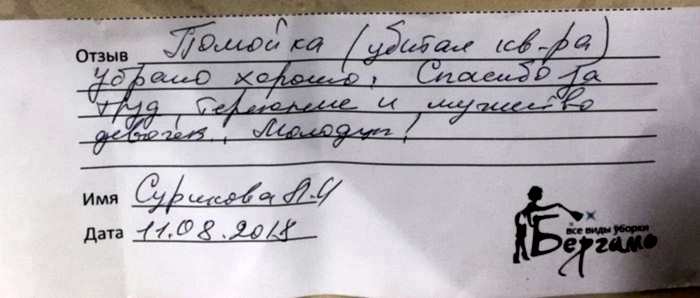 Отзыв Помойка (убитая кв-ра)
убрано хорошо. Спасибо за
труд, терпение и мужество
девочек. Молодцы!
Имя Сурикова А.И
Дата 11.08.2018
все виды уборки
Бергамо